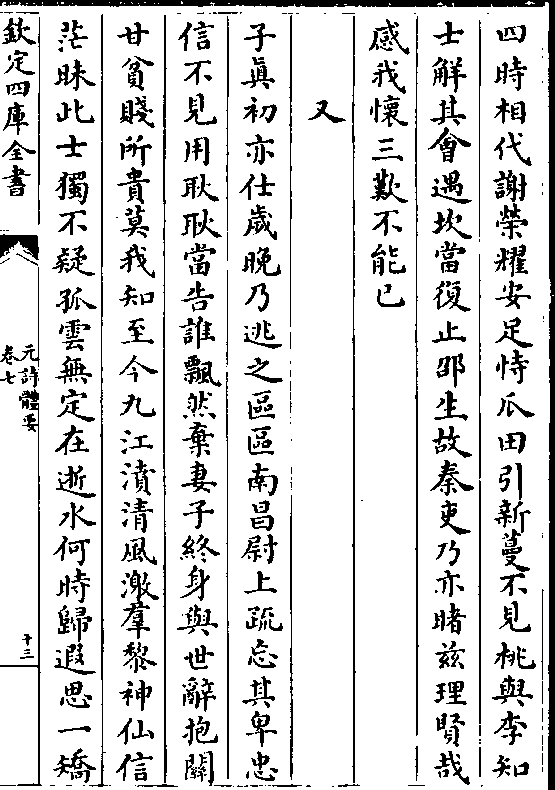 四時相代謝榮耀安足恃瓜田引新蔓不見桃與李知
士解其會遇坎當復止邵生故秦吏乃亦睹茲理賢哉
感我懷三歎不能已
又
子真初亦仕歲晚乃逃之區區南昌尉上疏忘其卑忠
信不見用耿耿當告誰飄然棄妻子終身與世辭抱關
甘貧賤所貴莫我知至今九江濆清風激羣黎神仙信
茫昧此士獨不疑孤雲無定在逝水何時歸遐思一矯
欽定四庫全書
元詩體要
卷七
十三